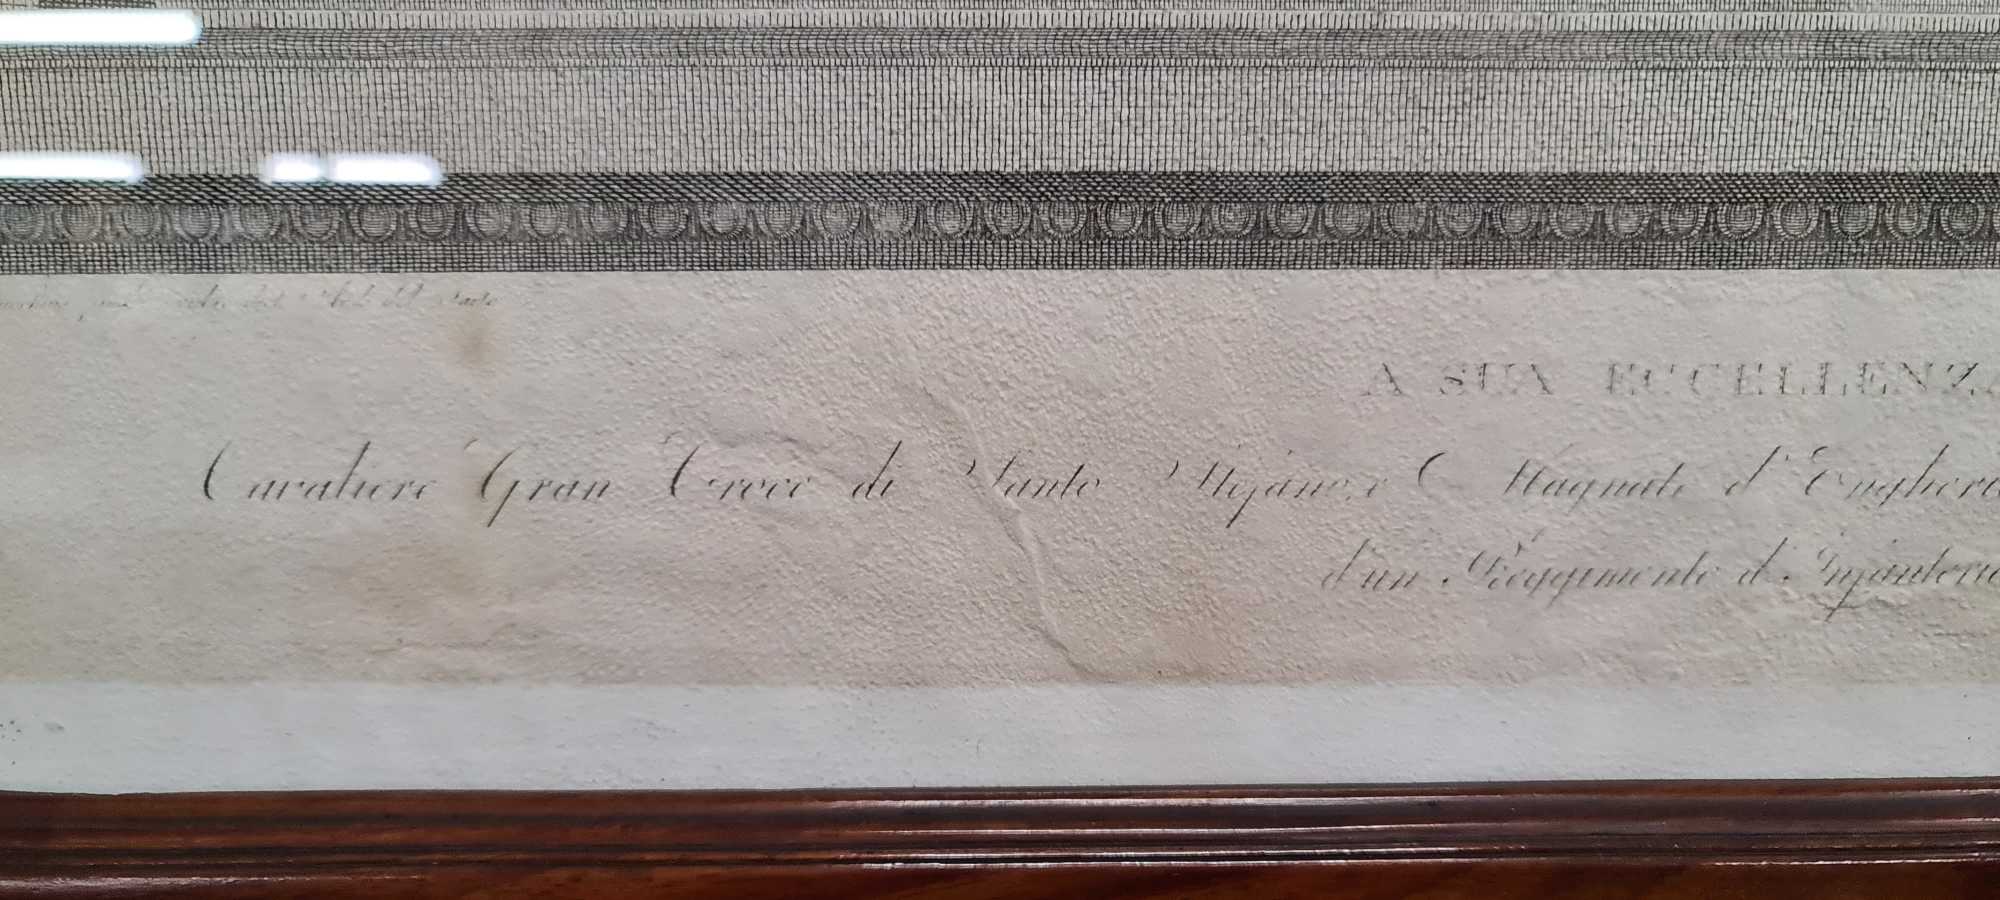 del Sarto
A SUA ECCELLENZA
Cavaliere Gran Croce di Santo Stefano, e Magnate d'Ungheria
d'un Reggimento d'Infanteria